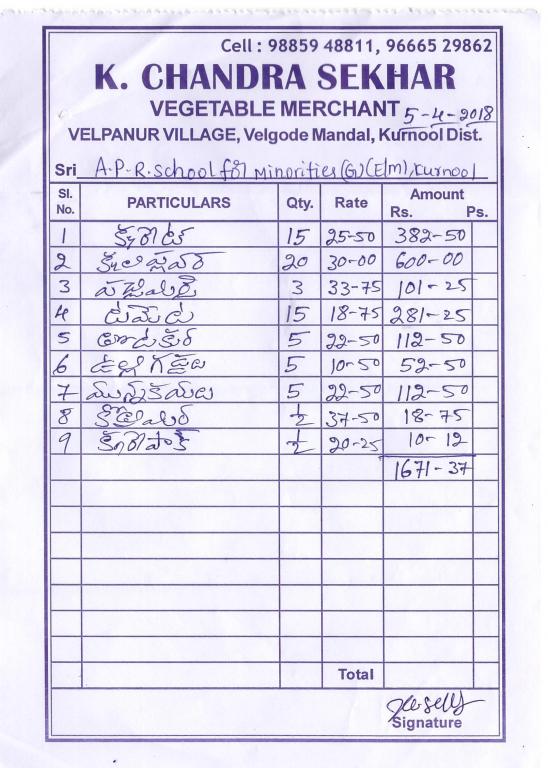 Cell : 98859 48811, 96665 29862
K. CHANDRA SEKHAR
VEGETABLE MERCHANT 5-4-2018
VELPANUR VILLAGE, Velgode Mandal, Kurnool Dist.
Sri A.P.R.School for Minorities(G)(E/M),Kurnool
Sl. No. PARTICULARS Qty. Rate Amount Rs. Ps.
1 క్యారెట్ 15 25-50 382-50
2 20 30-00 600-00
3 పచ్చిమిర్చి 3 33-75 101-25
4 టమోట 15 18-75 281-25
5 తోటకూర 5 22-50 112-50
6 ఉల్లిగడ్డలు 5 10-50 52-50
7 మునక్కాయలు 5 22-50 112-50
8 ½ 37-50 18-75
9 ½ 20-25 10-12
1671-37
Total
Signature